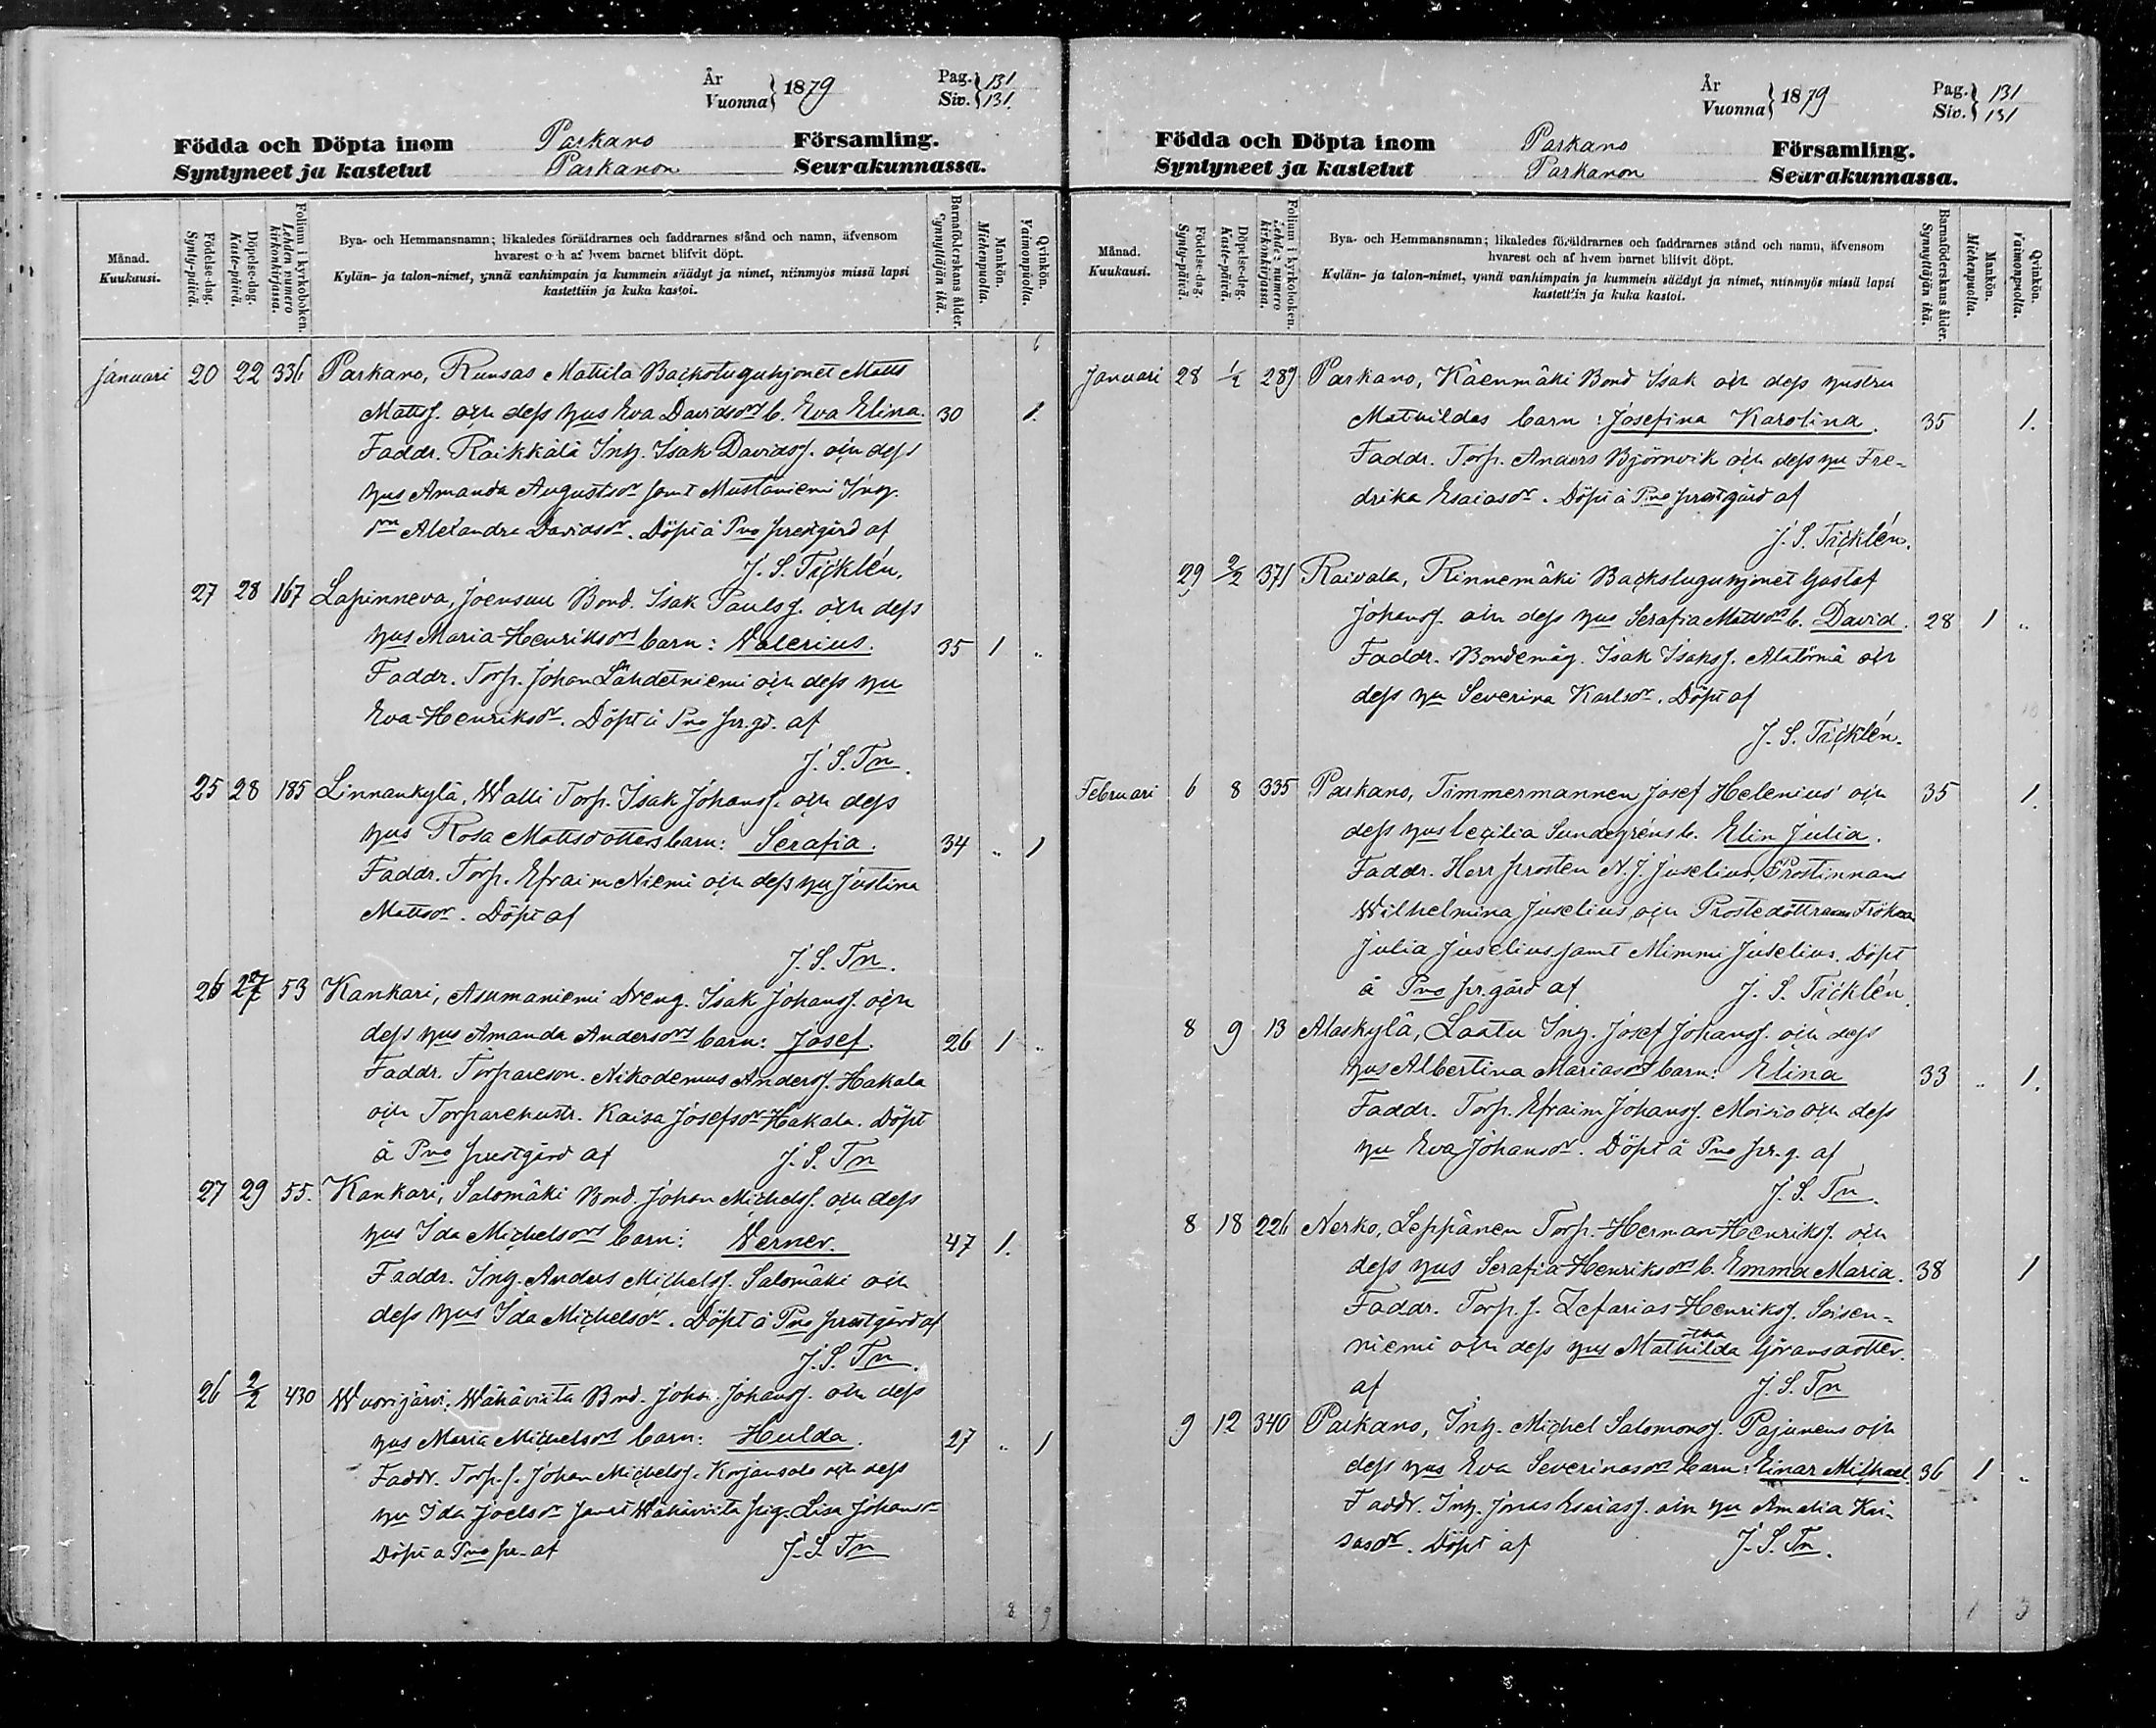 År
Vuonna } 1879
Pag. } 131
Siv. } 131.
Födda och Döpta inom Parkano Församling.
Syntyneet ja kastetut Parkanon Seurakunnassa.
Månad.
Kuukausi.
Födelse-dag.
Synty-päivä.
Döpelse-dag.
Kaste-päivä.
Folium i kyrkoboken.
Lehden numero kirkonkirjassa.
Bya- och Hemmansnamn; likaledes föräldrarnes och faddrarnes stånd och namn, äfvensom
hvarest och af hvem barnet blifvit döpt.
Kylän- ja talon-nimet, ynnä vanhimpain ja kummein säädyt ja nimet, niinmyös missä lapsi
kastettiin ja kuka kastoi.
Barnaföderskans ålder.
Synnyttäjän ikä.
Mankön.
Miehenpuolia.
Qvinkön.
Vaimonpuolia.
6
Januari 20 22 336 Parkano, Ruusas Mattila Backstuguhjonet Matts
Mattss. och dess hus Eva Davidsdrs b. Eva Elina. 30 1.
Faddr. Räikkälä Inh. Isak Davidss. och dess
hus Amanda Augustsdr samt Mustaniemi Ing.
Alexandra Davidsdr. Döpt å Pno prestgård af
J. S. Täcklén.
27 28 167 Lapinneva, Joensuu Bond. Isak Paulss. och dess
hus Maria Henriksdrs barn: Valerius. 35 1 "
Faddr. Torp. Johan Lähdetniemi och dess hu
Eva Henriksdr. Döpt å Pno pr.gd. af
J. S. Tn.
25 28 185 Linnankylä, Walli Torp. Isak Johanss. och dess
hus Rosa Mattsdotters barn: Serafia. 34 " 1
Faddr. Torp. Efraim Niemi och dess hu Justina
Mattsdr. Döpt af
J. S. Tn.
26 27 53 Kankari, Asumaniemi Dreng. Isak Johanss. och
dess hus Amanda Andersdrs barn: Josef. 26 1 "
Faddr. Torpareson. Nikodemus Anderss. Hakala
och Torparehustr. Kaisa Josefsdr Hakala. Döpt
å Pno prestgård af J. S. Tn
27 29 55. Kankari, Salomäki Bond. Johan Michelss. och dess
hus Ida Michelsdrs barn: Verner. 47 1.
Faddr. Inh. Anders Michelss. Salomäki och
dess hus Ida Michelsdr. Döpt å Pno prestgård af
J. S. Tn.
26 2/2 430 Wuorijärvi, Wähäviita Bond. Joha. Johanss. och dess
hus Maria Michelsdrs barn: Hulda. 27 " 1
Faddr. Torp. s. Johan Michelss. Korjansalo och dess
hu Ida Joelsdr samt Wähäviita pig. Lisa Johansdr
Döpt å Pno pr. af J. S. Tn
8 9
År
Vuonna } 1879
Pag. } 131
Siv. } 131
Födda och Döpta inom Parkano Församling.
Syntyneet ja kastetut Parkanon Seurakunnassa.
Månad.
Kuukausi.
Födelse-dag.
Synty-päivä.
Döpelse-dag.
Kaste-päivä.
Folium i kyrkoboken.
Lehden numero kirkonkirjassa.
Bya- och Hemmansnamn; likaledes föräldrarnes och faddrarnes stånd och namn, äfvensom
hvarest och af hvem barnet blifvit döpt.
Kylän- ja talon-nimet, ynnä vanhimpain ja kummein säädyt ja nimet, niinmyös missä lapsi
kastettiin ja kuka kastoi.
Barnaföderskans ålder.
Synnyttäjän ikä.
Mankön.
Miehenpuolia.
Qvinkön.
Vaimonpuolia.
Januari 28 1/2 289 Parkano, Käenmäki Bond Isak och dess hustru
Mathildas barn: Josefina Karolina. 35 1.
Faddr. Torp. Anders Björnvik och dess hu Fre-
drika Esaiasdr. Döpt å Pno prestgård af
J. S. Täcklén.
29 2/2 371 Raivala, Rinnemäki Backstuguhjonet Gustaf
Johanss. och dess hus Serafia Mattsdrs b. David. 28 1 "
Faddr. Bondemåg. Isak Isakss. Alatörmä och
dess hu Severina Karlsdr. Döpt af
J. S. Täcklén.
Februari 6 8 335 Parkano, Timmermannen Josef Helenius' och 35 1.
dess hus Cecilia Sundegréns b. Elin Julia.
Faddr. Herr prosten N. J. Juselius, Prostinnans
Wilhelmina Juselius, och Prostedöttrarna Fröknar
Julia Juselius samt Mimmi Juselius. Döpt
å Pno pr.gård af J. S. Täcklén.
8 9 13 Alaskylä, Laatu Ing. Josef Johanss. och dess
hus Albertina Mariasdrs barn: Elina 33 " 1.
Faddr. Torp. Efraim Johanss. Moisio och dess
hu Eva Johansdr. Döpt å Pno pr.g. af
J. S. Tn.
8 18 226 Nerko, Leppänen Torp. Herman Henrikss. och
dess hus Serafia Henriksdrs b. Emma Maria. 38 1
Faddr. Torp. s. Zefarias Henrikss. Soisen-
niemi och dess hus Mathilda Göransdotter.
af J. S. Tn
9 12 340 Parkano, Inh. Michel Salomonss. Pajunens och
dess hus Eva Severinasdrs barn: Einar Michael. 36 1 "
Faddr. Inh. Jonas Esaiass. och hu Amalia Kai-
sasdr. Döpt af J. S. Tn.
1 3